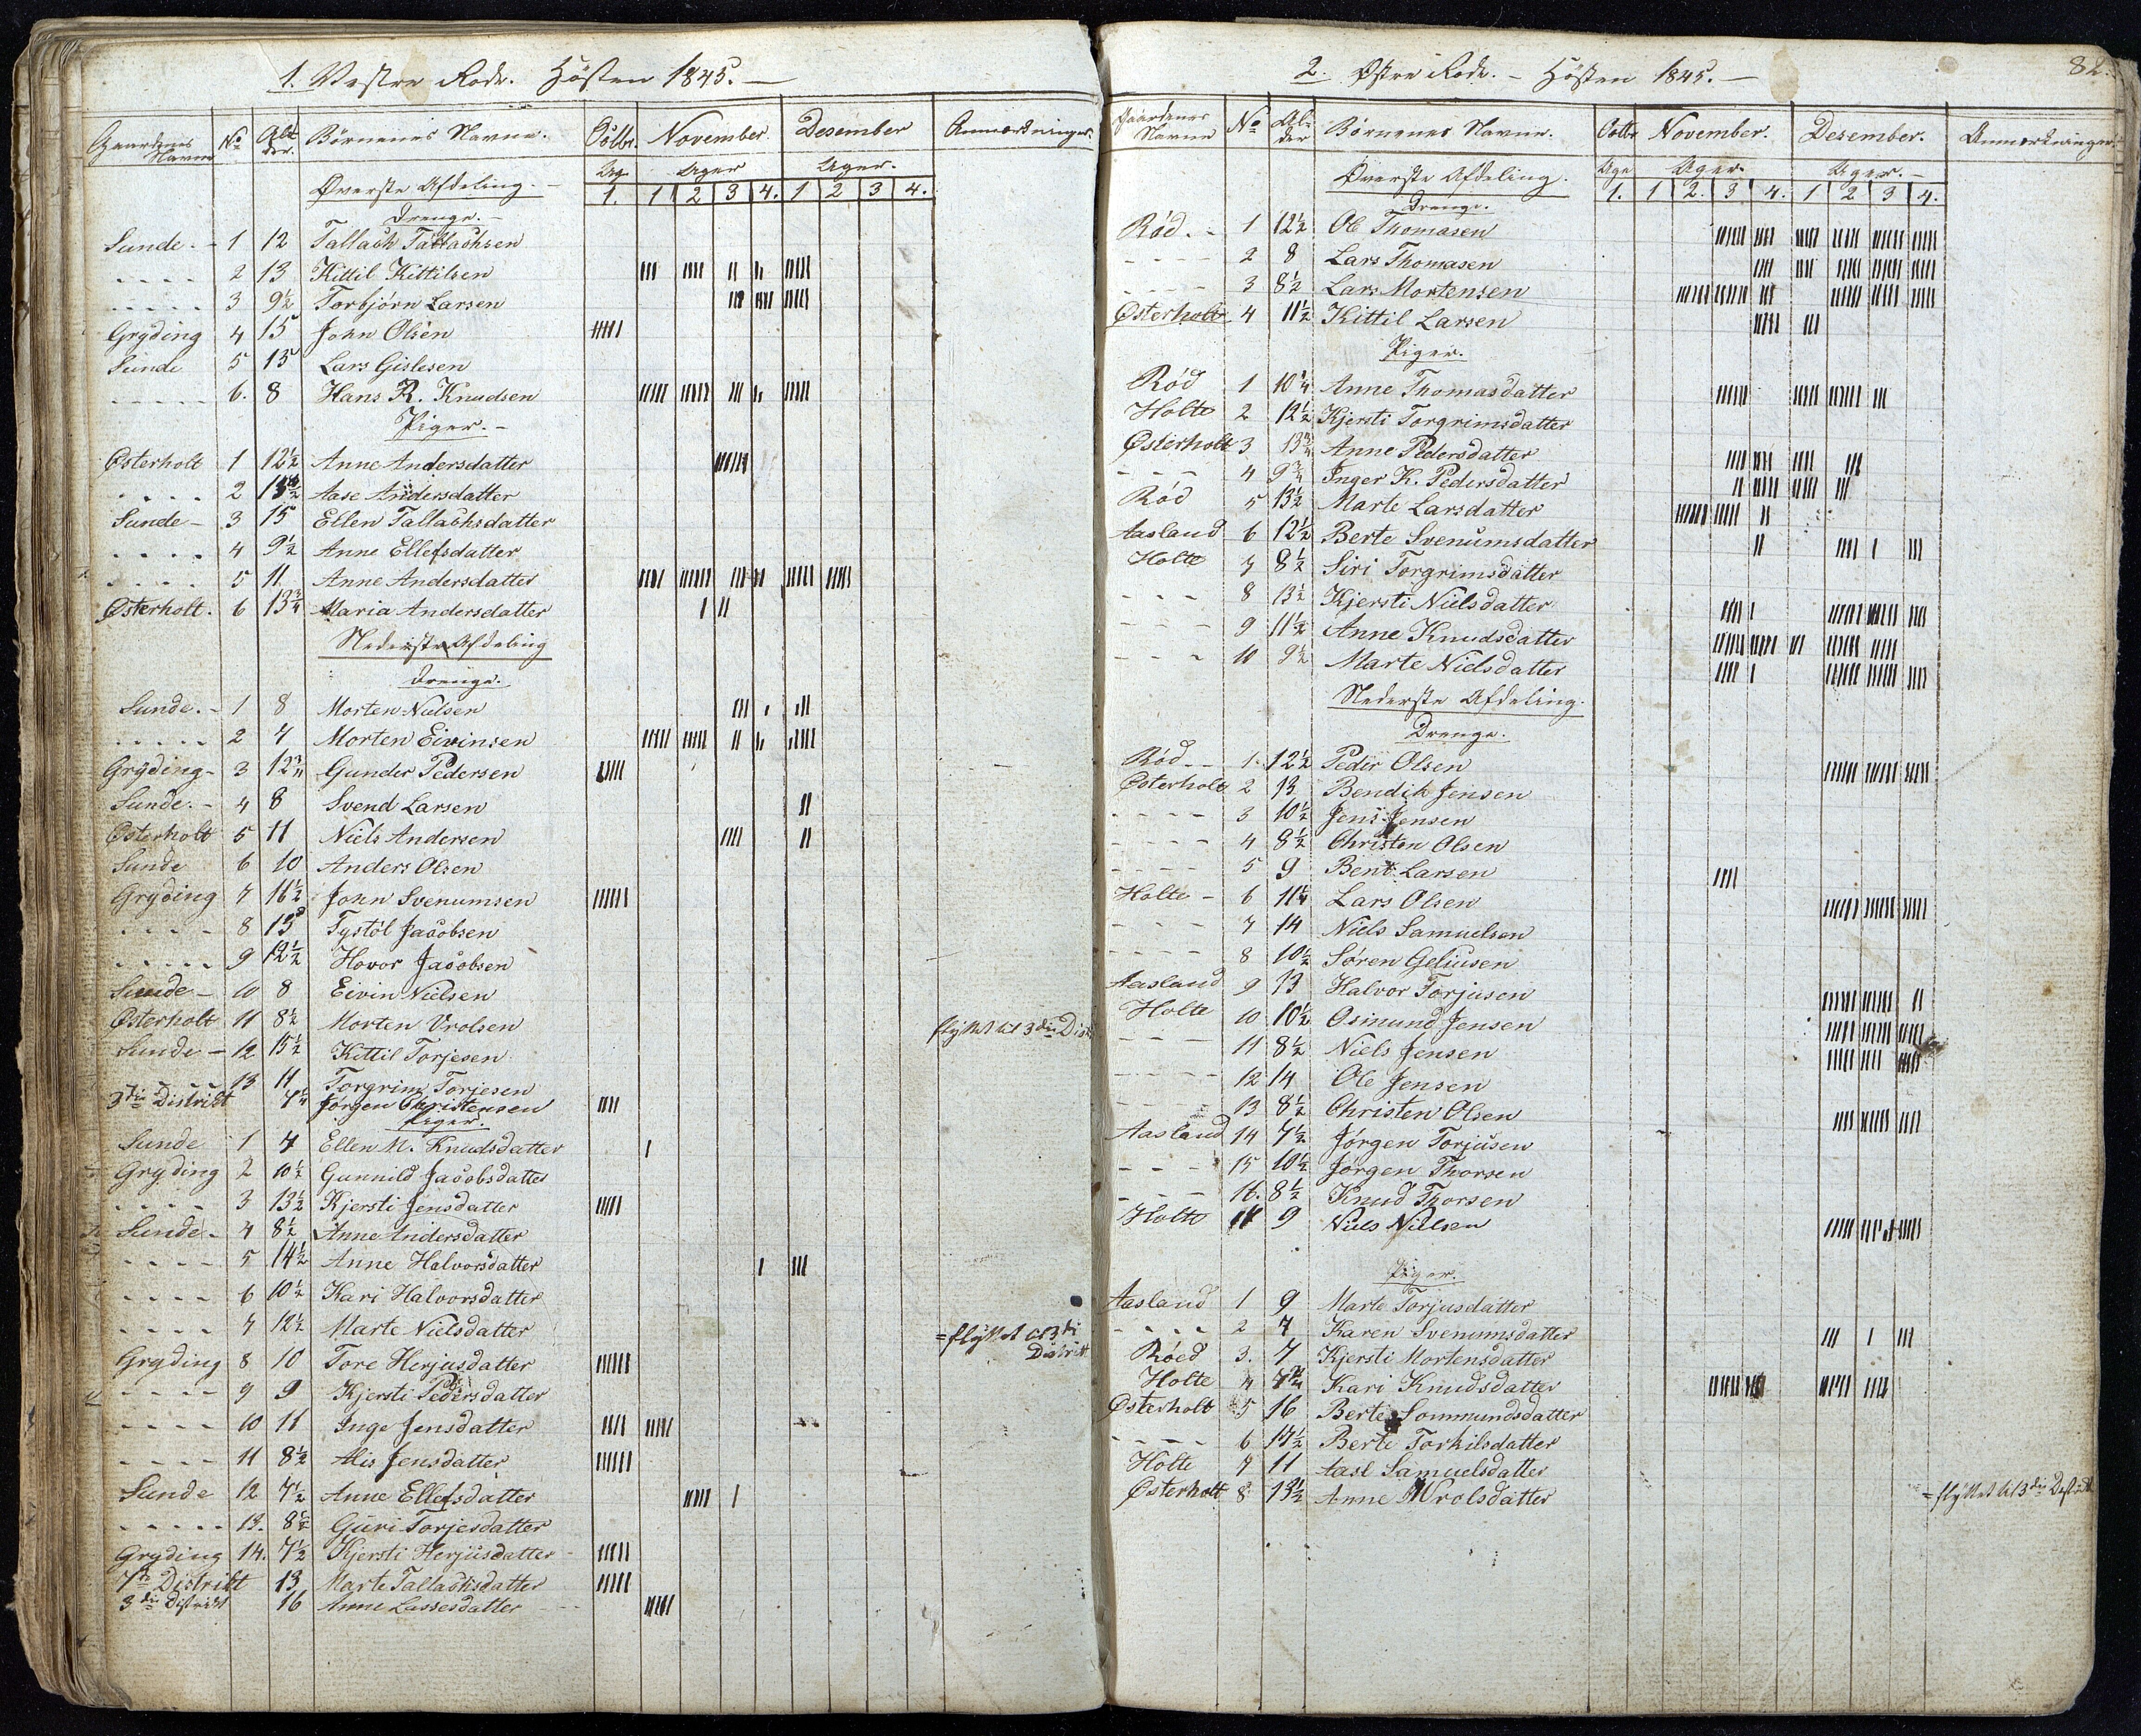 1. Vestre Rode. Hösten 1845. —
Gaardenes Navne No Alder. Börnenes Navne. Octbr. November Desember Anmærkninger.
Øverste Afdeling. — Ug. Uger Uger.
1. 1 2 3 4. 1 2 3 4.
Drenge. —
Sunde. - 1 12 Tallach Tallachsen
- - - - 2 13 Kittil Kittilsen
- - - - 3 9½ Torbjørn Larsen
Gryding 4 15 John Olsen
Sunde 5 15 Lars Gislesen
- - - - 6. 8 Hans R. Knudsen
Piger. -
Østerholt 1 12½ Anne Andersdatter
- - - - 2 Aase Andersdatter
Sunde - 3 15 Ellen Tallachsdatter
- - - - 4 9½ Anne Ellefsdatter
- - - - 5 11. Anne Andersdatter
Østerholt. 6 13¾ Maria Andersdatter
Nederste Afdeling
Drenge.
Sunde. - 1 8 Morten Nielsen
- - - - 2 7 Morten Eivinsen
Gryding - 3 12¾ Gunder Pedersen
Sunde. - 4 8 Svend Larsen
Østerholt 5 11 Niels Andersen
Sunde 6 10 Anders Olsen
Gryding 7 16½ John Svenumsen
- - - - 8 15 Tystöl Jacobsen
- - - - 9 12½ Hovor Jacobsen
Sunde - 10 8 Eivin Nielsen
Østerholt 11 8½ Morten Vrolsen flyttet til 3die Dist
Sunde - 12 15½ Kittil Torjesen
- - - - 13 11 Torgrim Torjesen
3die District 7¼ Jørgen Christensen
Piger.
Sunde 1 7 Ellen M. Knudsdatter
Gryding 2 10½ Gunnild Jacobsdatter
- - - - 3 13½ Kjersti Jensdatter
Sunde - 4 8½ Anne Andersdatter
- - - - 5 14½ Anne Halvorsdatter
- - - - 6 10½ Kari Halvorsdatter
- - - - 7 12½ Marte Nielsdatter = flyttet til 3di
Gryding 8 10 Tore Herjusdatter District
- - - - 9 9 Kjersti Pedersdatter
- - - - 10 11 Inge Jensdatter
- - - - 11 8½ Alis Jensdatter
Sunde 12 7½ Anne Ellefsdatter
- - - - 13. 8½ Guri Torjesdatter
Gryding 14. 7½ Kjersti Herjusdatter
7de District 13 Marte Tallachsdatter
3die District 16 Anne Lassesdatter
82.
2. Østre Rode. - Hösten 1845. —
Gaardenes Navne No Alder Börnenes Navne. Octbr November. Desember. Anmærkninger.
Øverste Afdeling. Uge Uger. Uger. -
1. 1 2. 3 4. 1 2 3 4.
Drenge.
Rød. - 1 12½ Ole Thomasen
- - - - 2 8 Lars Thomasen
- - - - 3 8½ Lars Mortensen
Østerholt 4 11½ Kittil Larsen
Piger.
Rød 1 10¼ Anne Thomasdatter
Holte 2 12½ Kjersti Torgrimsdatter
Østerholt 3 13¾ Anne Pedersdatter
- - - 4 9¾ Inger K. Pedersdatter
Rød 5 13½ Marte Larsdatter
Aasland 6 12½ Berte Svenumsdatter
Holte 7 8½ Siri Torgrimsdatter
- - - 8 13½ Kjersti Nielsdatter
- - - 9 11½ Anne Knudsdatter
- - - 10 9½ Marte Nielsdatter
Nederste Afdeling.
Drenge.
Rød - - 1. 12½ Peder Olsen
Østerholt 2 13 Bendik Jensen
- - - - 3 10½ Jens Jensen
- - - - 4 8½ Christen Olsen
- - - - 5 9 Bent Larsen
Holte - 6 11¼ Lars Olsen
- - - 7 14 Niels Samuelsen
- - - - 8 10½ Søren Geliusen
Aasland 9 13 Halvor Torjusen
Holte 10 10½ Osmund Jensen
- - - 11 8½ Niels Jensen
- - - - 12 14 Ole Jensen
- - - 13 8½ Christen Olsen
Aasland 14 7½ Jørgen Torjusen
- - - - 15 10½ Jørgen Thorsen
- - - - 16. 8½ Knud Thorsen
Holte 17 9 Niels Nielsen
Piger.
Aasland 1 9 Marte Torjusdatter
- - - - 2 7 Karen Svenumsdatter
Røed 3. 7 Kjersti Mortensdatter
Holte 4 7¾ Kari Knudsdatter
Østerholt 5 16 Berte Sommundsdatter
- - - - 6 17½ Berte Torkilsdatter
Holte 7 11 Aasl Samuelsdatter
Østerholt 8 13½ Anne Wrolsdatter = flyttet til 3die District